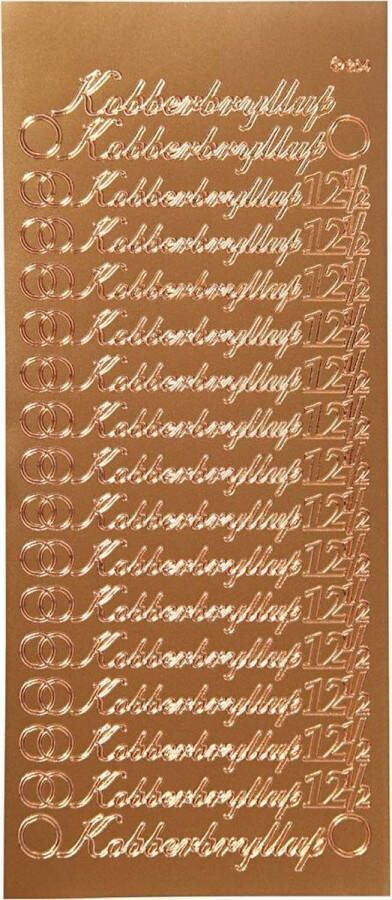 Kobberbryllup
Kobberbryllup
Kobberbryllup 12½
Kobberbryllup 12½
Kobberbryllup 12½
Kobberbryllup 12½
Kobberbryllup 12½
Kobberbryllup 12½
Kobberbryllup 12½
Kobberbryllup 12½
Kobberbryllup 12½
Kobberbryllup 12½
Kobberbryllup 12½
Kobberbryllup 12½
Kobberbryllup 12½
Kobberbryllup 12½
Kobberbryllup